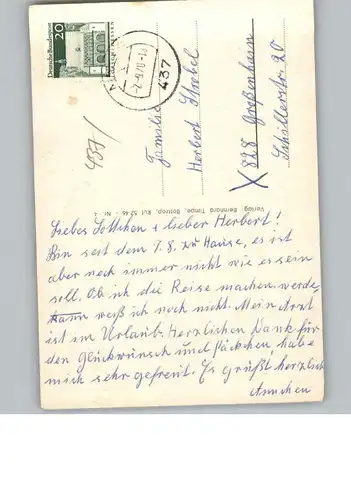 Deutsche Bundespost
20
-2.9.70-1
437
437/
Familie
Herbert Strebel
X 828 Großenhain
Schillerstr. 20
Verlag Bernhard Timpe, Bottrop, Ruf 52 46 - Nr. 4
Liebes Lottchen + lieber Herbert!
Bin seit dem 7.8. zu Hause, es ist
aber noch immer nicht wie es sein
soll. Ob ich die Reise machen werde,
kann weiß ich noch nicht. Mein Arzt
ist im Urlaub. Herzlichen Dank für
den Glückwunsch und Päckchen, habe
mich sehr gefreut. Es grüßt herzlich
Annchen